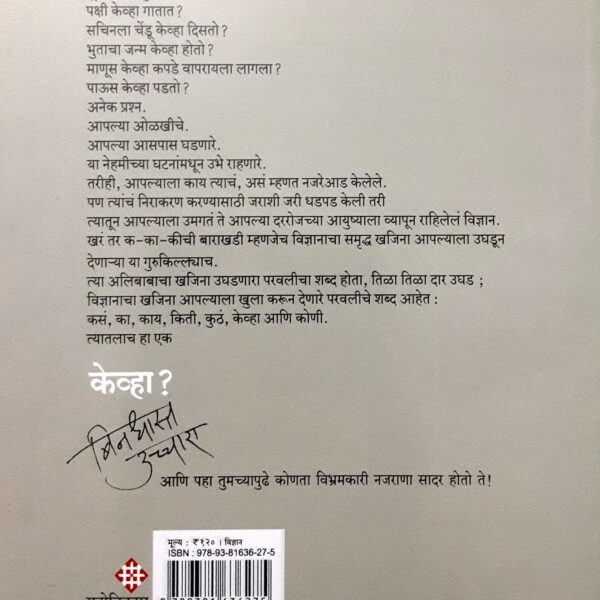 पक्षी केव्हा गातात?
सचिनला चेंडू केव्हा दिसतो?
भुताचा जन्म केव्हा होतो?
माणूस केव्हा कपडे वापरायला लागला?
पाऊस केव्हा पडतो?
अनेक प्रश्न.
आपल्या ओळखीचे.
आपल्या आसपास घडणारे.
या नेहमीच्या घटनांमधून उभे राहणारे.
तरीही, आपल्याला काय त्याचं, असं म्हणत नजरेआड केलेले.
पण त्यांचं निराकरण करण्यासाठी जराशी जरी धडपड केली तरी
त्यातून आपल्याला उमगतं ते आपल्या दररोजच्या आयुष्याला व्यापून राहिलेलं विज्ञान.
खरं तर क-का-कीची बाराखडी म्हणजेच विज्ञानाचा समृद्ध खजिना आपल्याला उघडून
देणाऱ्या या गुरुकिल्ल्याच.
त्या अलिबाबाचा खजिना उघडणारा परवलीचा शब्द होता, तिळा तिळा दार उघड ;
विज्ञानाचा खजिना आपल्याला खुला करून देणारे परवलीचे शब्द आहेत :
कसं, का, काय, किती, कुठं, केव्हा आणि कोणी.
त्यातलाच हा एक
केव्हा?
बिनधास्त
उच्चारा
आणि पहा तुमच्यापुढे कोणता विभ्रमकारी नजराणा सादर होतो ते!
मूल्य : ₹१२० । विज्ञान
ISBN : 978-93-81636-27-5